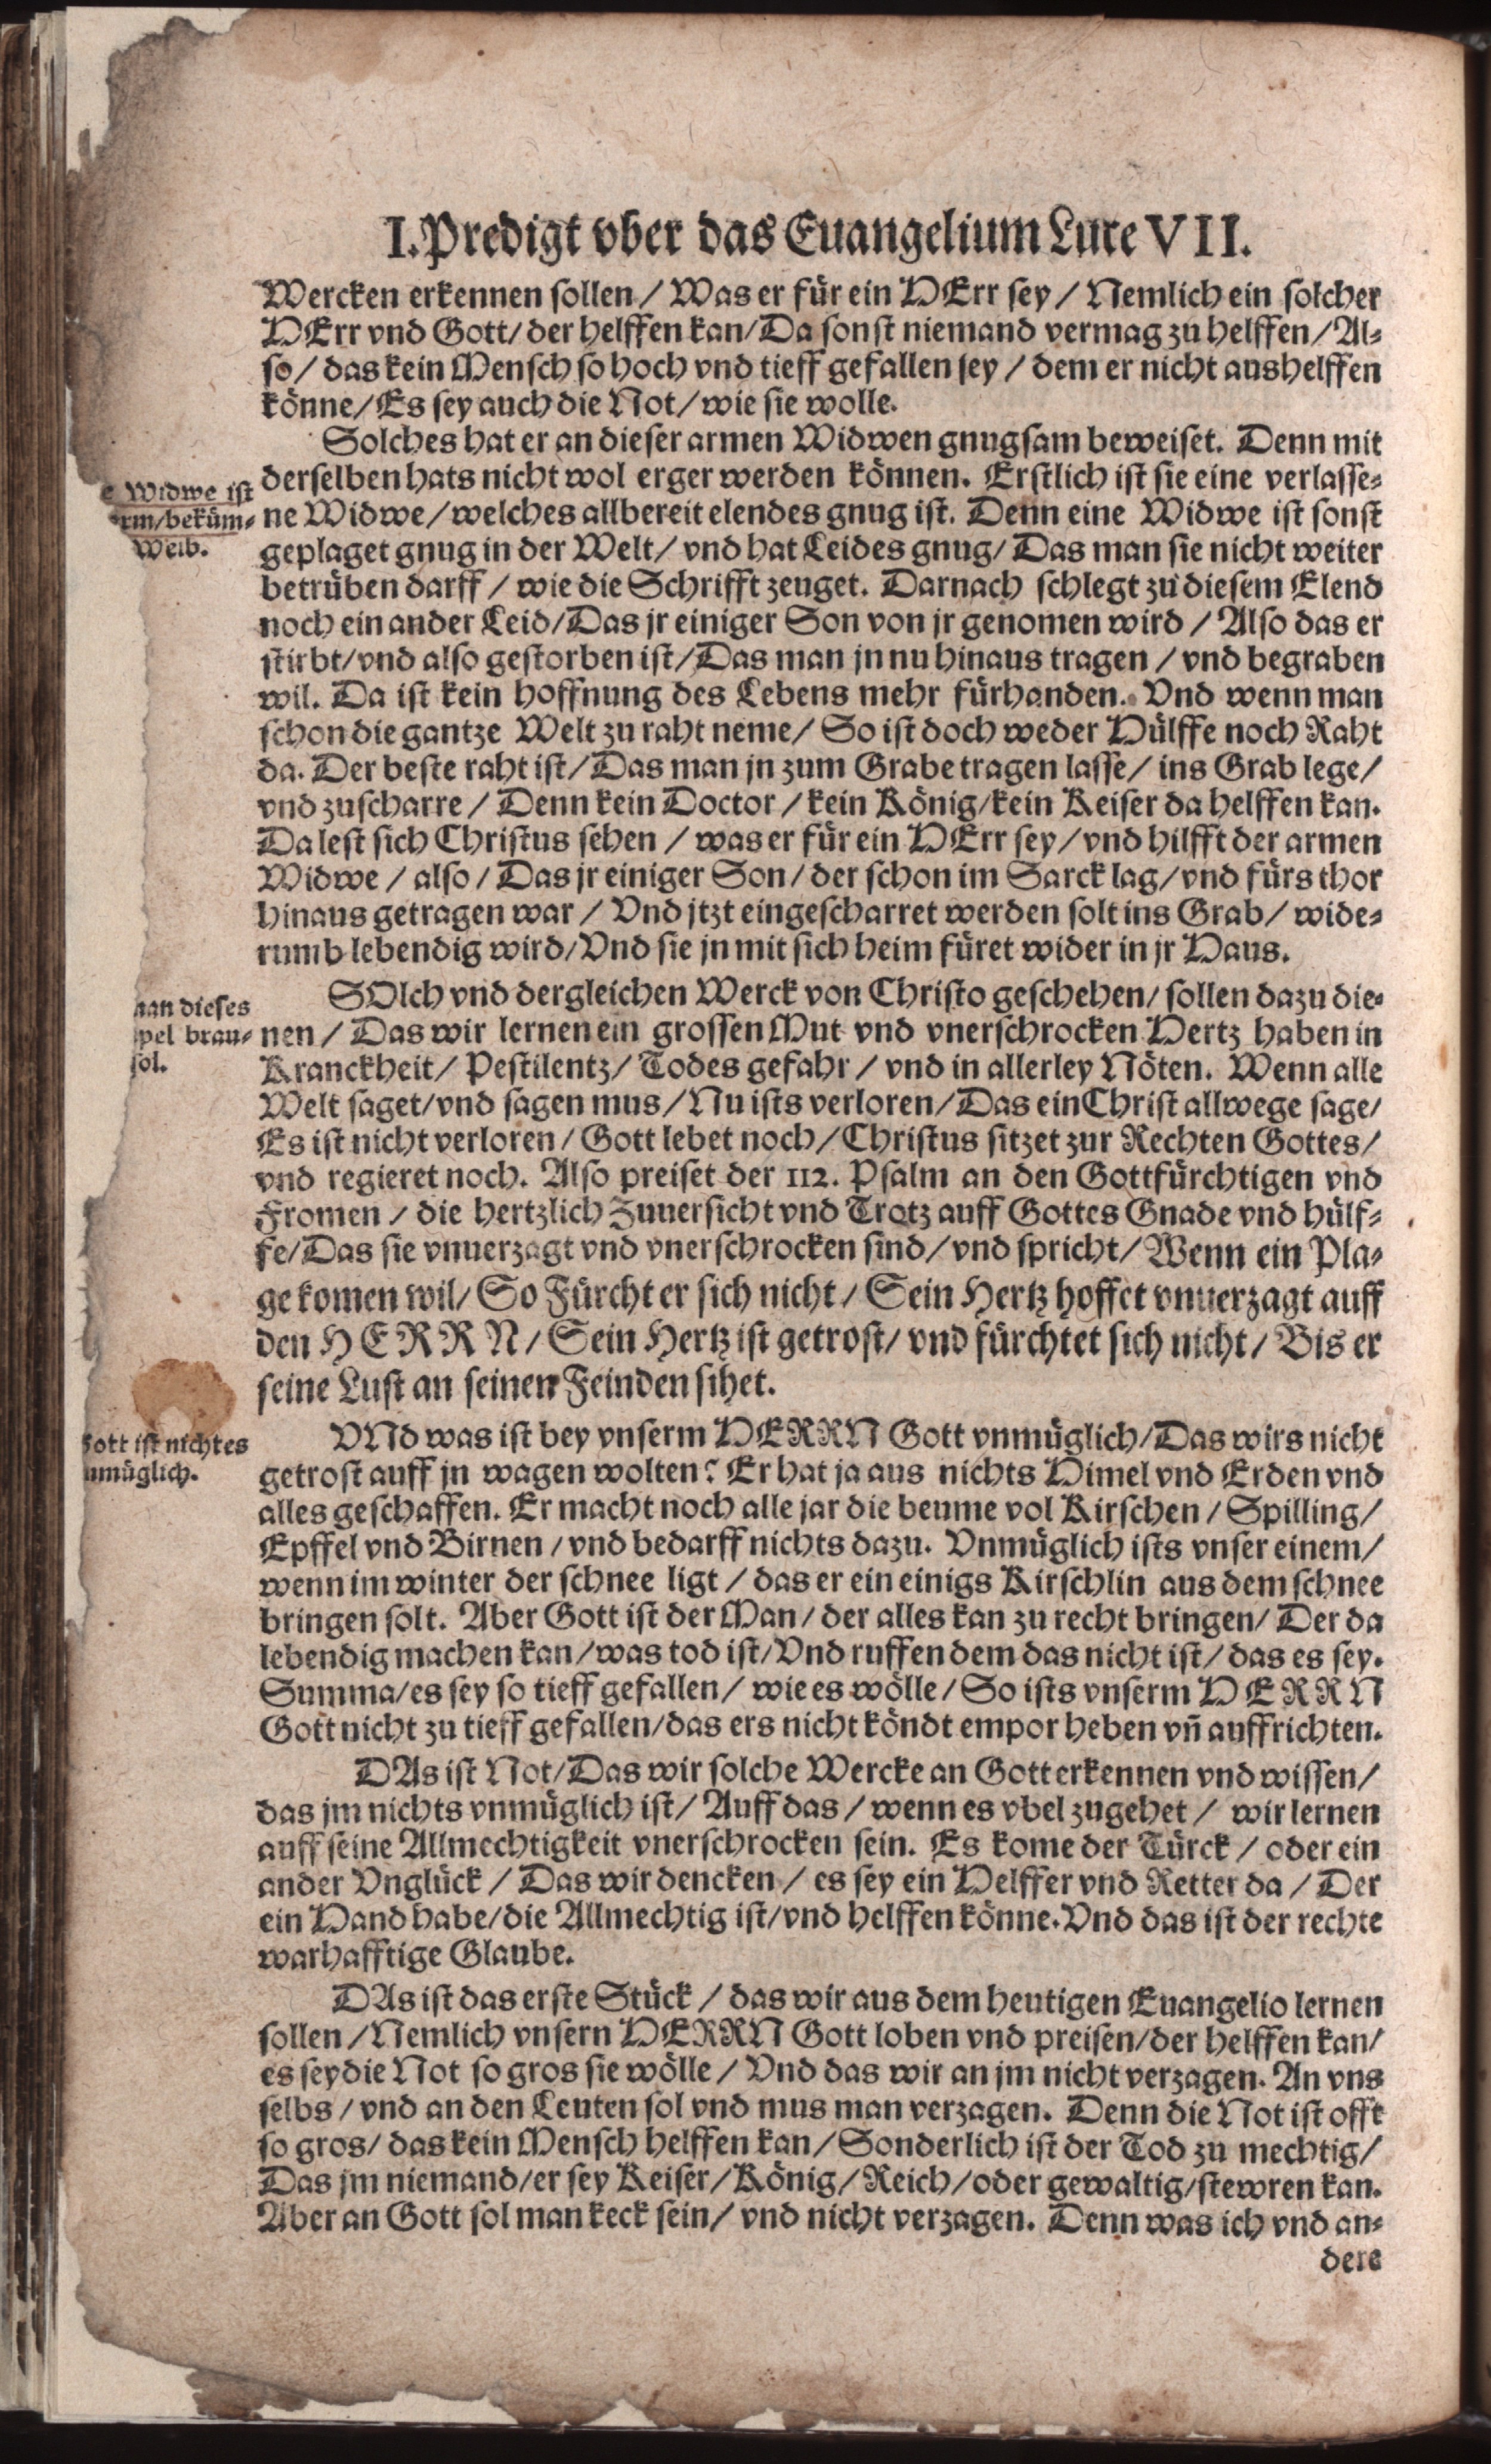 I. Predigt vber das Euangelium Luce VII.
Wercken erkennen sollen / Was er für ein HErr sey / Nemlich ein solcher
HErr vnd Gott / der helffen kan / Da sonst niemand vermag zu helffen / Al-
so / das kein Mensch so hoch vnd tieff gefallen sey / dem er nicht aushelffen
könne / Es sey auch die Not / wie sie wolle.
Solches hat er an dieser armen Widwen gnugsam beweiset. Denn mit
derselben hats nicht wol erger werden können. Erstlich ist sie eine verlasse-
e Widwe ist
rm / beküm-
Weib.
ne Widwe / welches allbereit elendes gnug ist. Denn eine Widwe ist sonst
geplaget gnug in der Welt / vnd hat Leides gnug / Das man sie nicht weiter
betrüben darff / wie die Schrifft zeuget. Darnach schlegt zu diesem Elend
noch ein ander Leid / Das jr einiger Son von jr genomen wird / Also das er
stirbt / vnd also gestorben ist / Das man jn nu hinaus tragen / vnd begraben
wil. Da ist kein hoffnung des Lebens mehr fürhanden. Vnd wenn man
schon die gantze Welt zu raht neme / So ist doch weder Hülffe noch Raht
da. Der beste raht ist / Das man jn zum Grabe tragen lasse / ins Grab lege /
vnd zuscharre / Denn kein Doctor / kein König / kein Keiser da helffen kan.
Da lest sich Christus sehen / was er für ein HErr sey / vnd hilfft der armen
Widwe / also / Das jr einiger Son / der schon im Sarck lag / vnd fürs thor
hinaus getragen war / Vnd jtzt eingescharret werden solt ins Grab / wide-
rumb lebendig wird / Vnd sie jn mit sich heim füret wider in jr Haus.
SOlch vnd dergleichen Werck von Christo geschehen / sollen dazu die-
man dieses
pel brau-
sol.
nen / Das wir lernen ein grossen Mut vnd vnerschrocken Hertz haben in
Kranckheit / Pestilentz / Todes gefahr / vnd in allerley Nöten. Wenn alle
Welt saget / vnd sagen mus / Nu ists verloren / Das ein Christ allwege sage /
Es ist nicht verloren / Gott lebet noch / Christus sitzet zur Rechten Gottes /
vnd regieret noch. Also preiset der 112. Psalm an den Gottfürchtigen vnd
Fromen / die hertzlich Zuuersicht vnd Trotz auff Gottes Gnade vnd hülf-
fe / Das sie vnuerzagt vnd vnerschrocken sind / vnd spricht / Wenn ein Pla-
ge komen wil / So Fürcht er sich nicht / Sein Hertz hoffet vnuerzagt auff
den HERRN / Sein Hertz ist getrost / vnd fürchtet sich nicht / Bis er
seine Lust an seinen Feinden sihet.
VNd was ist bey vnserm HERRN Gott vnmüglich / Das wirs nicht
Gott ist nichtes
nmüglich.
getrost auff jn wagen wolten? Er hat ja aus nichts Himel vnd Erden vnd
alles geschaffen. Er macht noch alle jar die beume vol Kirschen / Spilling /
Epffel vnd Birnen / vnd bedarff nichts dazu. Vnmüglich ists vnser einem /
wenn im winter der schnee ligt / das er ein einigs Kirschlin aus dem schnee
bringen solt. Aber Gott ist der Man / der alles kan zu recht bringen / Der da
lebendig machen kan / was tod ist / Vnd ruffen dem das nicht ist / das es sey.
Summa / es sey so tieff gefallen / wie es wölle / So ists vnserm HERRN
Gott nicht zu tieff gefallen / das ers nicht köndt empor heben vñ auffrichten.
DAs ist Not / Das wir solche Wercke an Gott erkennen vnd wissen /
das jm nichts vnmüglich ist / Auff das / wenn es vbel zugehet / wir lernen
auff seine Allmechtigkeit vnerschrocken sein. Es kome der Türck / oder ein
ander Vnglück / Das wir dencken / es sey ein Helffer vnd Retter da / Der
ein Hand habe / die Allmechtig ist / vnd helffen könne. Vnd das ist der rechte
warhafftige Glaube.
DAs ist das erste Stück / das wir aus dem heutigen Euangelio lernen
sollen / Nemlich vnsern HERRN Gott loben vnd preisen / der helffen kan /
es sey die Not so gros sie wölle / Vnd das wir an jm nicht verzagen. An vns
selbs / vnd an den Leuten sol vnd mus man verzagen. Denn die Not ist offt
so gros / das kein Mensch helffen kan / Sonderlich ist der Tod zu mechtig /
Das jm niemand / er sey Keiser / König / Reich / oder gewaltig / stewren kan.
Aber an Gott sol man keck sein / vnd nicht verzagen. Denn was ich vnd an-
dere